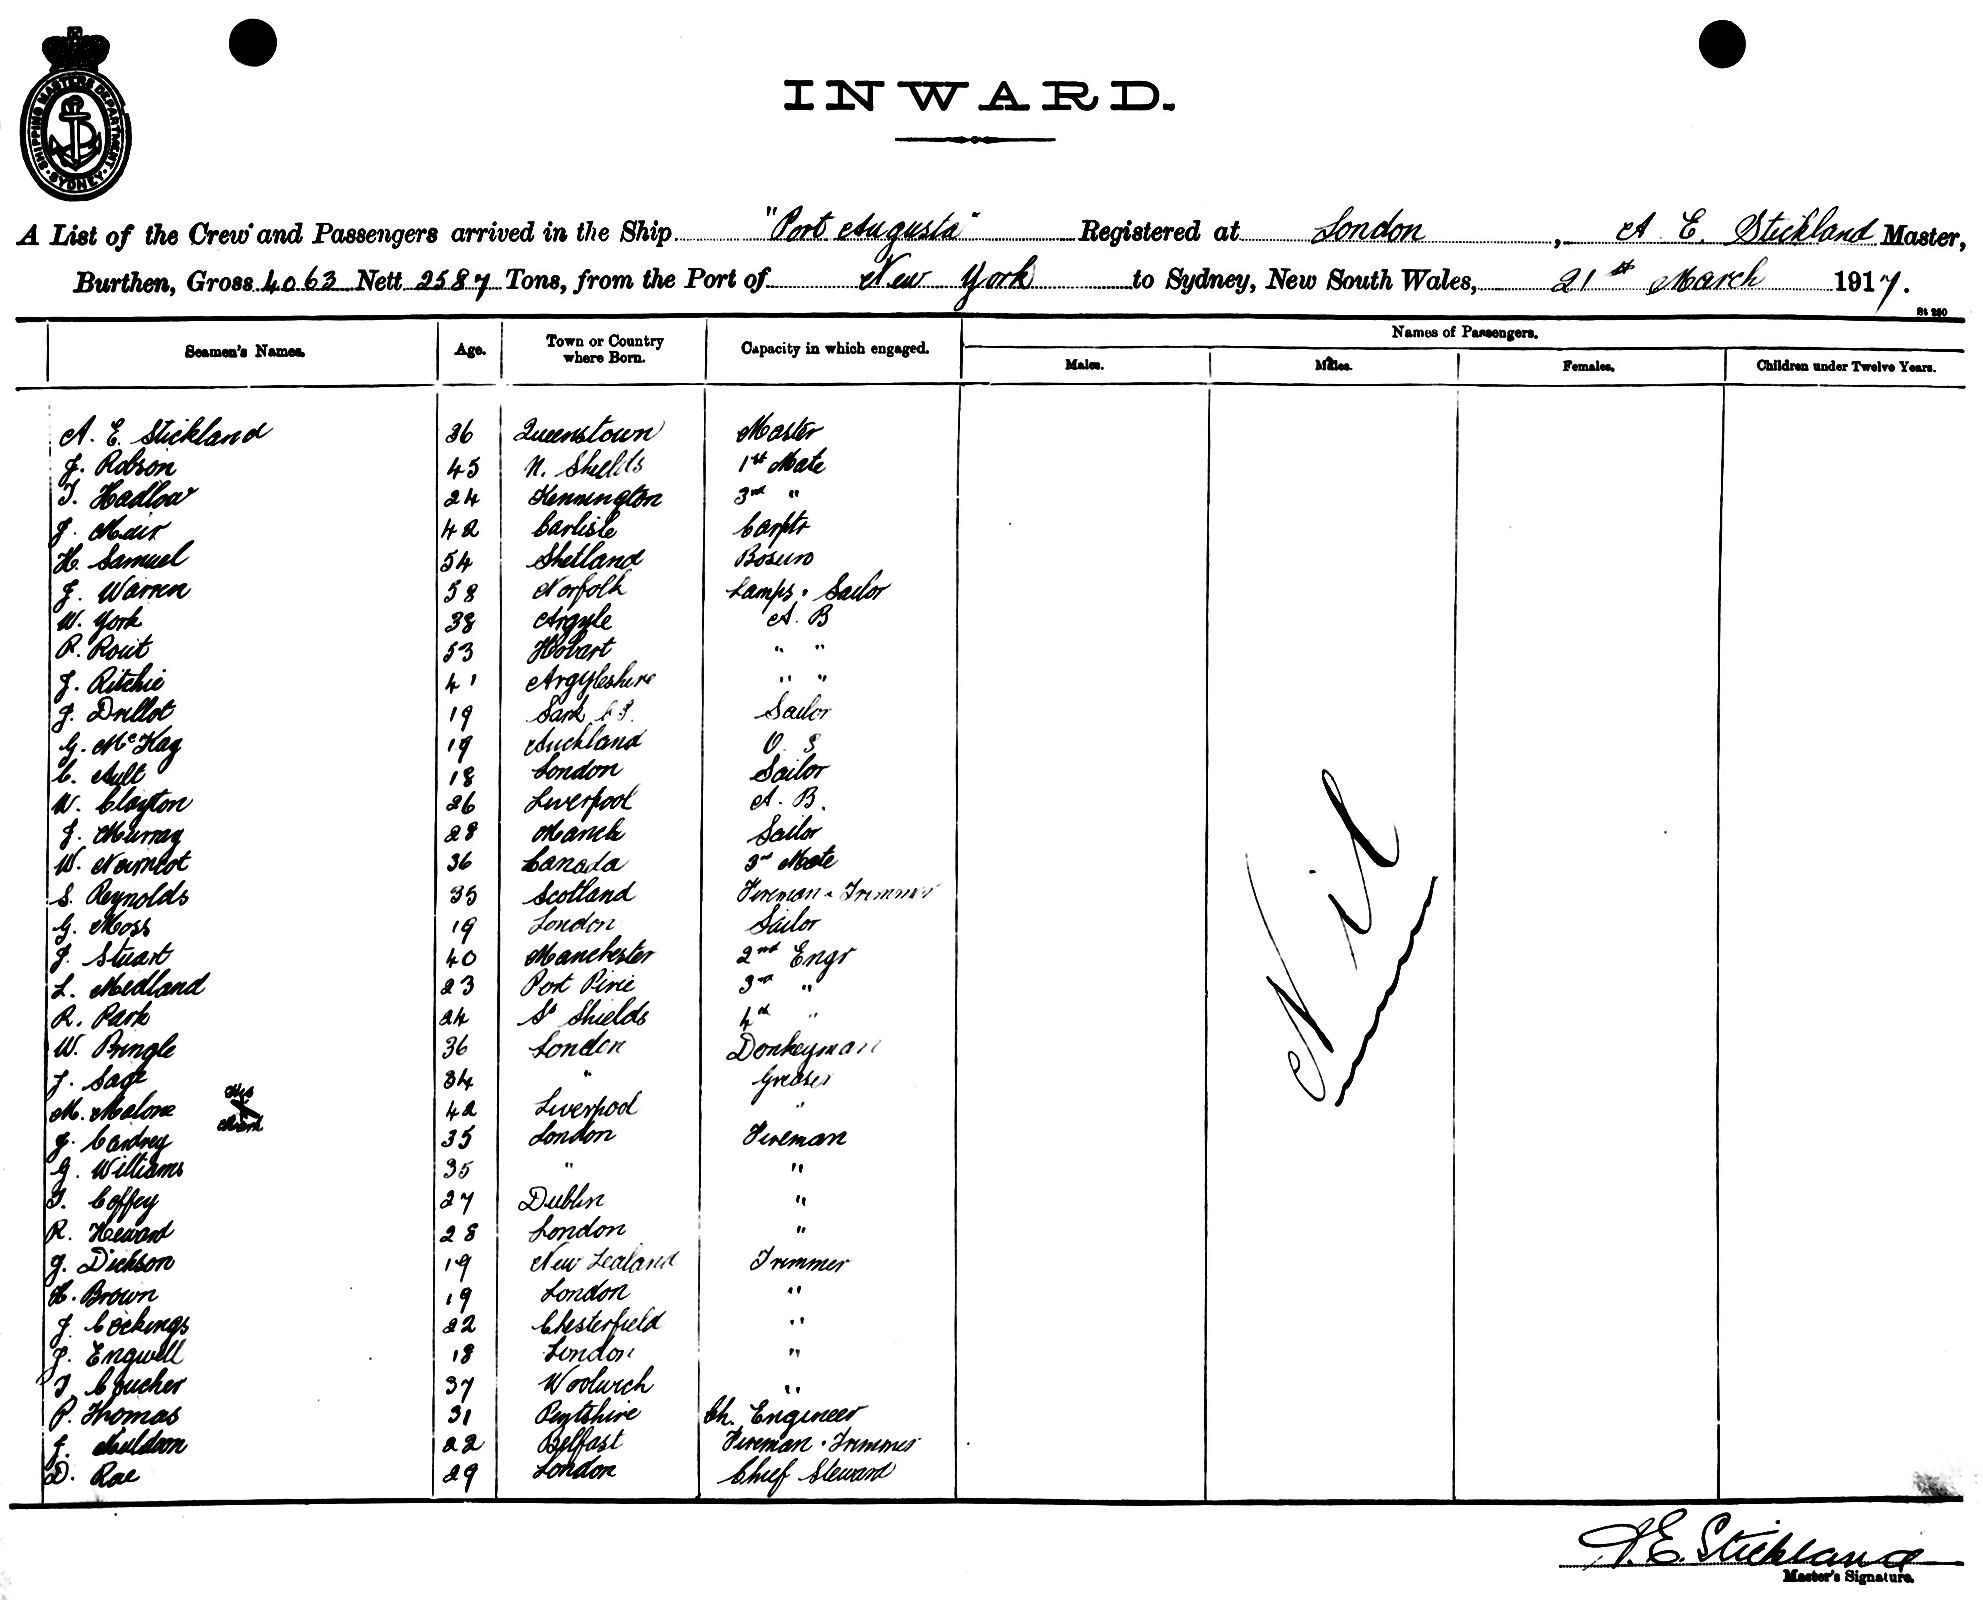 SHIPPING MASTERS DEPARTMENT · SYDNEY ·
INWARD.
A List of the Crew and Passengers arrived in the Ship "Port Augusta" Registered at London, A E. Stickland Master,
Burthen, Gross 4063 Nett 2587 Tons, from the Port of New York to Sydney, New South Wales, 21st March 1917.
St 280
Seamen's Names. Age. Town or Country where Born. Capacity in which engaged. Names of Passengers.
Males. Males. Females. Children under Twelve Years.
A. E. Stickland 36 Queenstown Master
J. Robson 45 N. Shields 1st Mate
T. Hadlow 24 Kennington 3rd "
J. Muir 42 Carlisle Carptr
H. Samuel 54 Shetland Bosun
J. Warren 58 Norfolk Lamps. Sailor
W. York 38 Argyle A. B
R. Rout 53 Hobart " "
J. Ritchie 41 Argyleshire " "
J. Drillot 19 Sark C I. Sailor
G. McKay 19 Auckland O. S
C. Ault 18 London Sailor
W. Clayton 26 Liverpool A. B.
J. Murray 28 Manch Sailor
W. 36 Canada 3rd Mate
S. Reynolds 35 Scotland Fireman. Trimmer
G. Moss 19 London Sailor
J. Stuart 40 Manchester 2nd Engr
L. Medland 23 Port Pirie 3rd "
R. Park 24 So Shields 4th "
W. Pringle 36 London Donkeyman
J. Sage 34 " Greaser
M. Malone His X Mark 42 Liverpool "
J. 35 London Fireman
G. Williams 35 " "
T. Coffey 27 Dublin "
R. Heward 28 London "
G. Dickson 19 New Zealand Trimmer
H. Brown 19 London "
J. Cockings 22 Chesterfield "
J. Engwell 18 London "
T. Coucher 37 Woolwich "
P. Thomas 31 Ch. Engineer
J. Muldoon 22 Belfast Fireman. Trimmer
D. Rae 29 London Chief Steward
Nil
A. E. Stickland
Master's Signature.